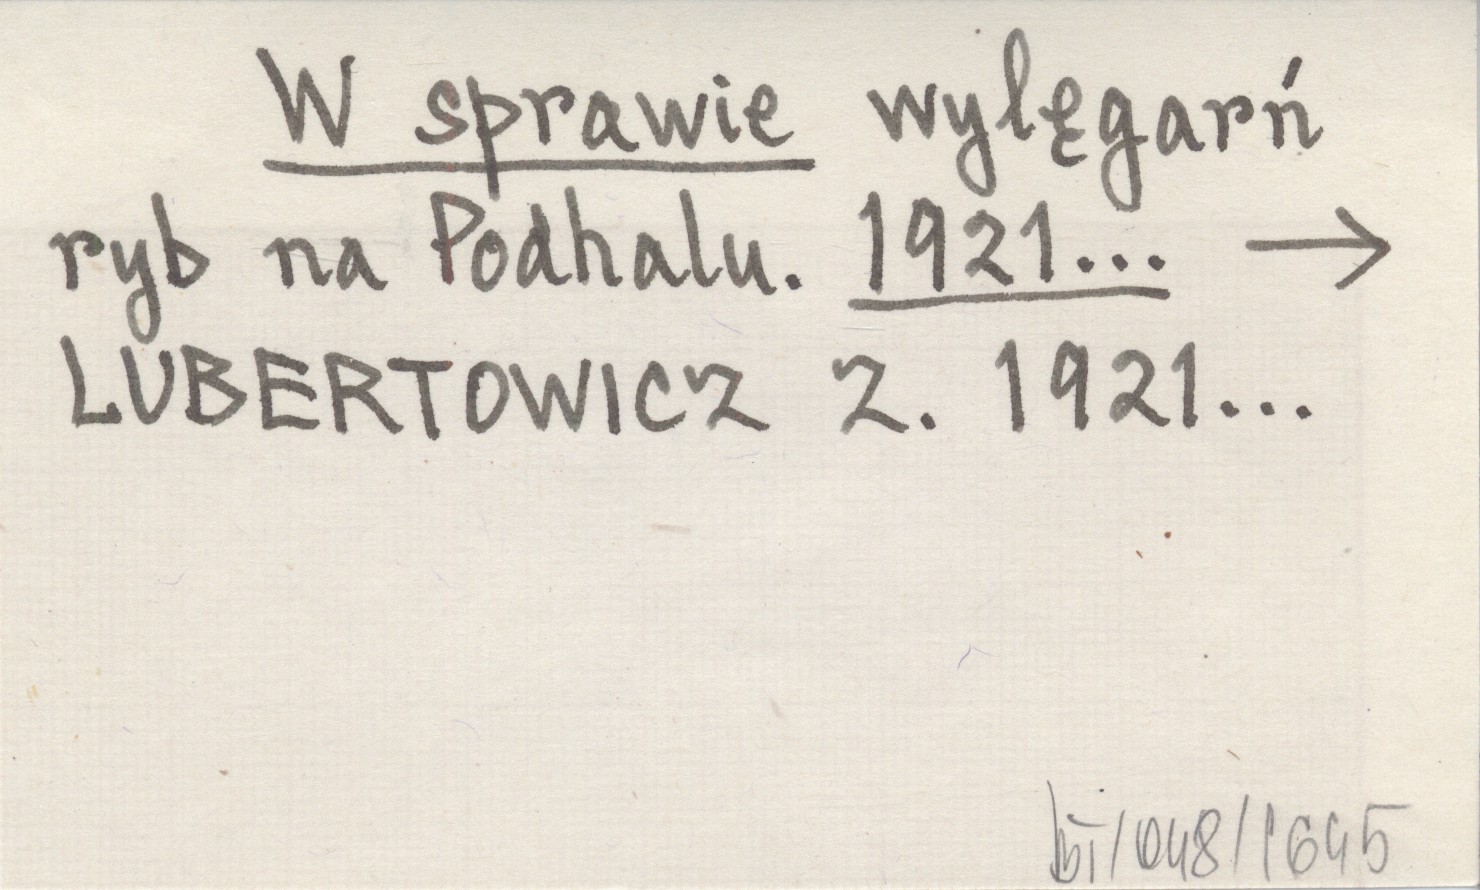 W sprawie wylęgarń
ryb na Podhalu. 1921... →
LUBERTOWICZ Z. 1921...
bī/048/1645